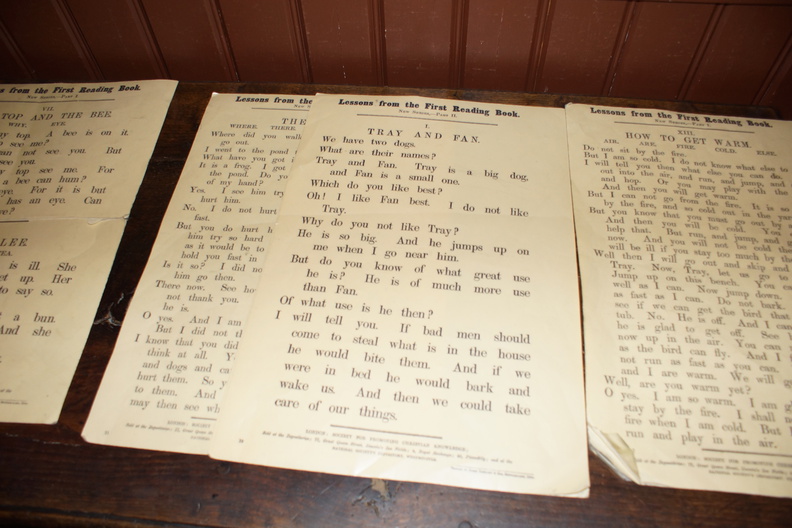 s from the First Reading Book.
New Series.—Part I.
VII.
TOP AND THE BEE.
WHY. EYE.
my top. A bee is on it.
see me?
can not see you. But
see you.
y top see me. For
a bee can hum?
For it is but
has an eye. Can
ee?
LEE
TEA.
is ill. She
et up. Her
to say so.
t a bun.
And she
Lessons from the
New S
THE
WHERE. THERE.
Where did you walk
go out.
I went to the pond
What have you got
It is a frog. I got
the pond. Do yo
of my hand?
Yes. I see him try
hurt him.
No. I do not hurt
fast.
But you do hurt h
him try so hard
as it would be to
hold you fast in
Is it so? I did no
him go then.
There now. See ho
not thank you.
he is.
O yes. And I am
But I did not th
I know that you did
think at all. Y
and dogs and ca
hurt them. So y
to them. And
may then see wh
LONDON: SOCIETY
Lessons from the First Reading Book.
New Series.—Part II.
I.
TRAY AND FAN.
We have two dogs.
What are their names?
Tray and Fan. Tray is a big dog,
and Fan is a small one.
Which do you like best?
Oh! I like Fan best. I do not like
Tray.
Why do you not like Tray?
He is so big. And he jumps up on
me when I go near him.
But do you know of what great use
he is? He is of much more use
than Fan.
Of what use is he then?
I will tell you. If bad men should
come to steal what is in the house
he would bite them. And if we
were in bed he would bark and
wake us. And then we could take
care of our things.
LONDON: SOCIETY FOR PROMOTING CHRISTIAN KNOWLEDGE.
Lessons from the First Reading Book.
New Series.—Part I.
XIII.
HOW TO GET WARM.
AIR. ARE. FIRE. COLD. ELSE.
Do not sit by the fire.
But I am so cold. I do not know what else to
I will tell you then what else you can do.
out into the air, and run, and jump, and
and hop. Or you may play with the
And then you will get warm.
But I can not go from the fire. It is so
by the fire, and so cold out in the
But you know that you must go out by
And then you will be cold. You
help that. But run, and jump, and
now. And you will not be cold
will be ill if you stay too much by the
Well then I will go out and skip and
Tray. Now, Tray, let us go to
Jump up on this bench. You can
well as I can. Now jump down.
as fast as I can. Do not bark.
see if we can get the bird that
tub. No. He is off. And I can
he is glad to get off. See
now up in the air. You can
as the bird can fly. And I
not run as fast as you can.
and I are warm. We will go
Well, are you warm yet?
O yes. I am so warm. I am gl
stay by the fire. I shall n
fire when I am cold. But I
run and play in the air.
LONDON: SOCIETY FOR PROMOTING CHRISTIAN